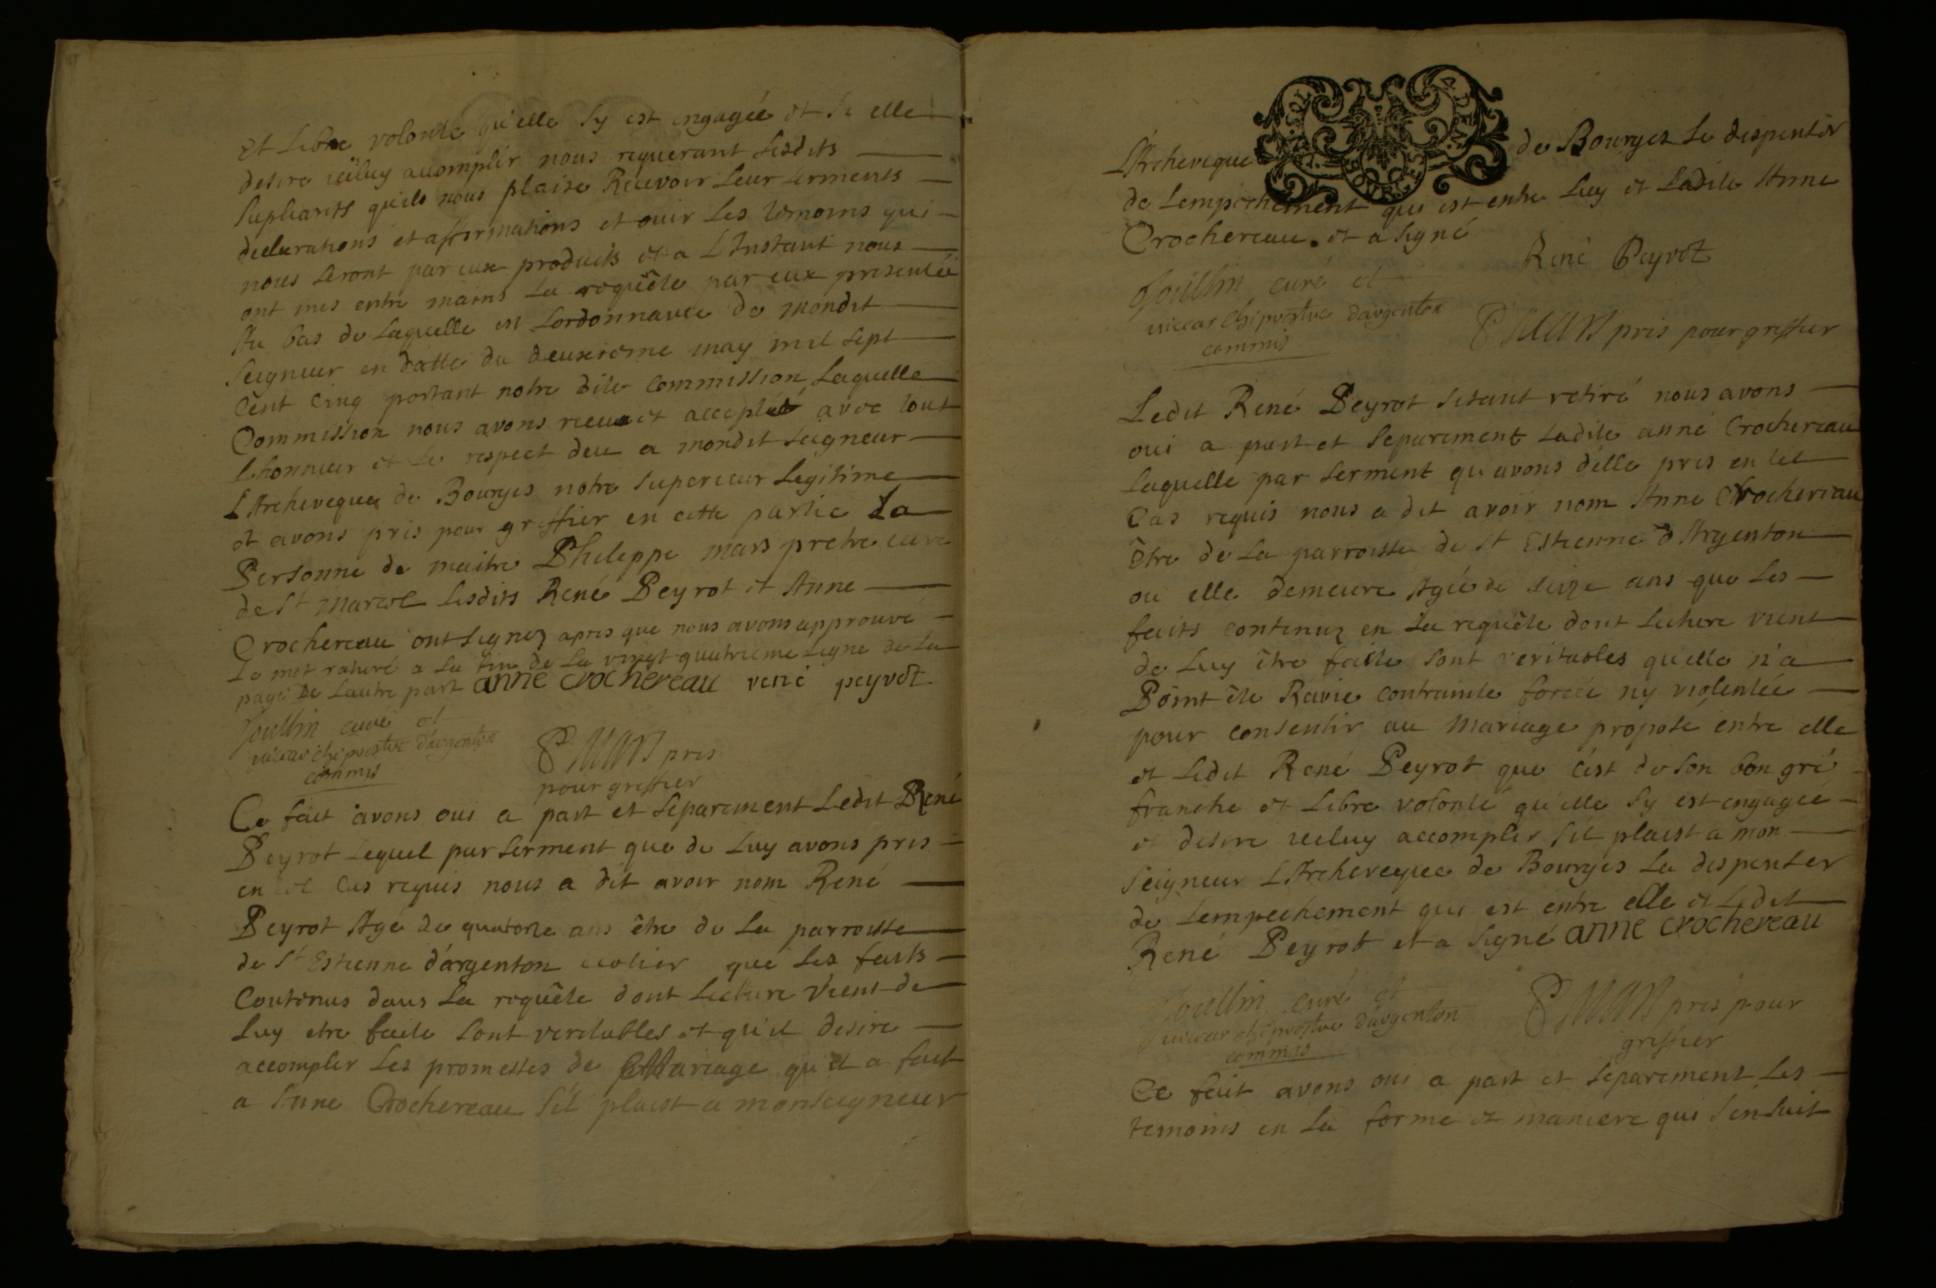 et Libre volonté qu'elle sy est engagée et si elle
desire iceluy accomplir nous requerant Lesdits
supliants qu'ils nous plaise Recevoir Leur serments
declarations et affirmations et ouir Les temoins qui
nous seront par eux produits et a L'Instant nous
ont mis entre mains La requête par eux presentée
Au bas de Laquelle est Lordonnance de mondit
seigneur en datte du deuxieme may mil sept
Cent Cinq portant notre dite commission Laquelle
Commission nous avons receu et accepté avec tout
Lhonneur et Le respect deu a mondit seigneur
LArcheveque de Bourges notre superieur Legitime
et avons pris pour greffier en cette partie La
Personne de maitre Philippe mars pretre curé
de St Marcel Lesdits René Peyrot et Anne
Crochereau ont signez apres que nous avons approuvé
Le mot raturé a La fin de La vingt quatrieme Ligne de La
page De Lautre part anne crochereau rené peyrot
Joullin curé et
viccar chiprestre dargenton
commis
P Mars pris
pour greffier
Ce fait avons oui a part et separement Ledit René
Peyrot Lequel par serment que de Luy avons pris
en tel Cas requis nous a dit avoir nom René
Peyrot Agé de quatorze ans être de La parroisse
de St Estienne d'argenton ecolier que Les faits
Contenus dans La requête dont Lecture vient de
Luy etre faite sont veritables et qu'il desire
accomplir Les promesses de Mariage qu'il a fait
a Anne Crochereau s'il plaist a monseigneur
L'Archeveque de Bourges Le dispenser
de Lempechement qui est entre Luy et Ladite Anne
Crochereau. et a signé
René Peyrot
Joullin curé et
viccar chiprestre dargenton
commis
P Mars pris pour greffier
Ledit René Peyrot setant retiré nous avons
oui a part et separement Ladite anne Crochereau
Laquelle par serment qu'avons d'elle pris en tel
Cas requis nous a dit avoir nom Anne Crochereau
être de La parroisse de St Estienne d'Argenton
ou elle demeure Agée de seize ans que Les
faits contenuz en La requête dont Lecture vient
de Luy être faitte sont veritables qu'elle n'a
Point ête Ravie contrainte forcée ny violentée
pour consentir au Mariage proposé entre elle
et Ledit René Peyrot que c'est de son bon gré
franche et Libre volonté qu'elle sy est engagée
et desire iceluy accomplir sil plaist a mon
seigneur LArcheveque de Bourges La dispenser
de Lempechement qui est entre elle et Ledit
René Peyrot et a signé anne crochereau
Joullin curé et
viccar chiprestre dargenton
commis
P Mars pris pour
greffier
Ce fait avons oui a part et separement Les
temoins en La forme et maniere qui s'ensuit